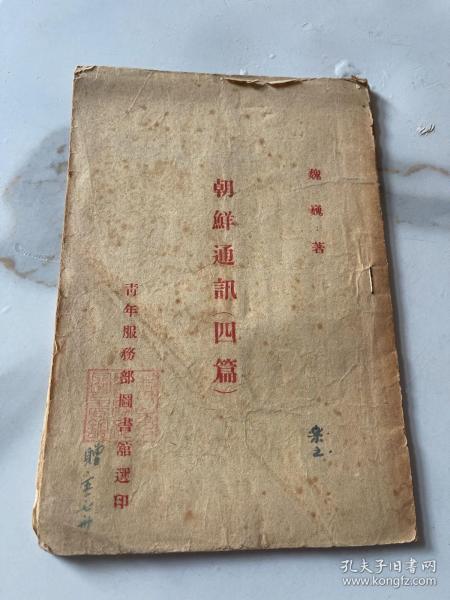 魏巍 著
朝鮮通訊(四篇)
青年服務部圖書館選印
贈
孔夫子旧书网
www.kongfz.com